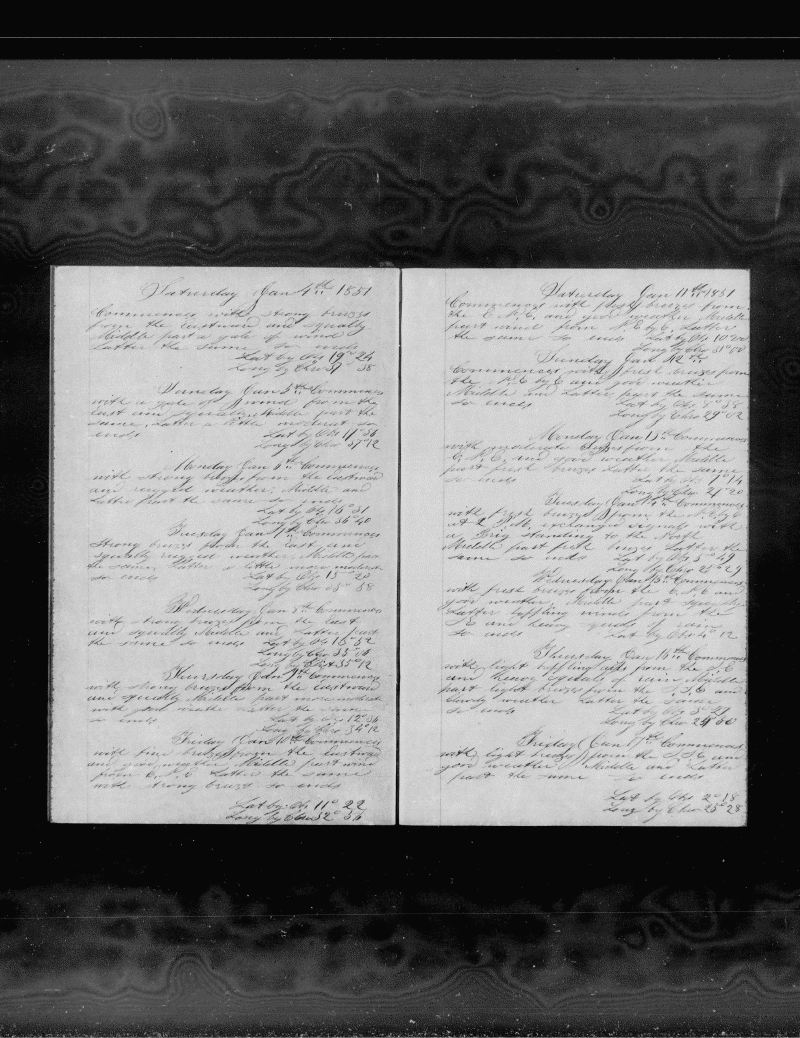 Saturday Jan 4th 1851
Commences with strong breezes
from the eastward and squally
Middle part a gale of wind
Latter the same so ends
Lat by Obs 19° 24
Long by Chro 37° 38
Sunday Jan 5th Commences
with a gale of wind from the
east and squally Middle part the
same, Latter a little moderate so
ends Lat by Obs 17° 36
Long by Chro 37° 12
Monday Jan 6th Commences
with strong breezes from the eastward
and rugged weather, Middle and
Latter part the same so ends
Lat by Obs 16° 31
Long by Chro 36° 40
Tuesday Jan 7th Commences
Strong breezes from the east and
squally rugged weather, Middle part
the same, Latter a little more moderate
so ends Lat by Obs 15° 20
Long by Chro 38
Wednesday Jan 8th Commences
with strong breezes from the east
and squally Middle and Latter part
the same so ends Lat by Obs 13° 52
Long by Chro
35° 12
Thursday Jan 9th Commences
with strong breezes from the eastward
and squally Middle part more moderate
with good weather Latter the same
so ends Lat by Obs 12° 36
Long by Chro 34° 12
Friday Jan 10th Commences
with fine breezes from the eastward
and good weather Middle part wind
from E.N.E Latter the same
with strong breezes so ends
Lat by Obs 11° 22
Long by Chro 32° 56
Saturday Jan 11th 1851
Commences with fresh breezes from
the E.N.E, and good weather Middle
part wind from N.E by E, Latter
the same so ends Lat by Obs 10° 20
Long by Chro 31° 00
Sunday Jan 12th
Commences with fresh breezes from
the N.E by E and good weather
Middle and Latter part the same
so ends Lat by Obs 18
Long by Chro 29° 02
Monday Jan 13th Commences
with moderate breezes from the
E.N.E, and good weather Middle
part fresh breezes Latter the same
so ends Lat by Obs 14
Long by Chro 20
Tuesday Jan 14th Commences
with fresh breezes from the N.E by E
At 2 P.M. exchanged signals with
a Brig standing to the North
Middle part fresh breezes Latter the
same so ends Lat by Obs 5° 49
Long by Chro 25° 29
Wednesday Jan 15th Commences
with fresh breezes from the E.N.E and
good weather, Middle part squally
Latter baffling winds from the
S.E and heavy squalls of rain
so ends Lat by Obs 4° 12
Thursday Jan 16th Commences
with light baffling airs from the S.E
and heavy squalls of rain Middle
part light breezes from the S.S.E and
cloudy weather Latter the same
so ends Lat by Obs 3° 27
Long by Chro
Friday Jan 17th Commences
with light breezes from the S.S.E and
good weather, Middle and Latter
part the same so ends
Lat by Obs 2° 18
Long by Chro 25° 28